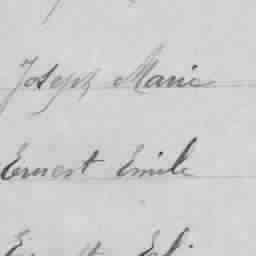 Joseph Marie
Ernest Emile